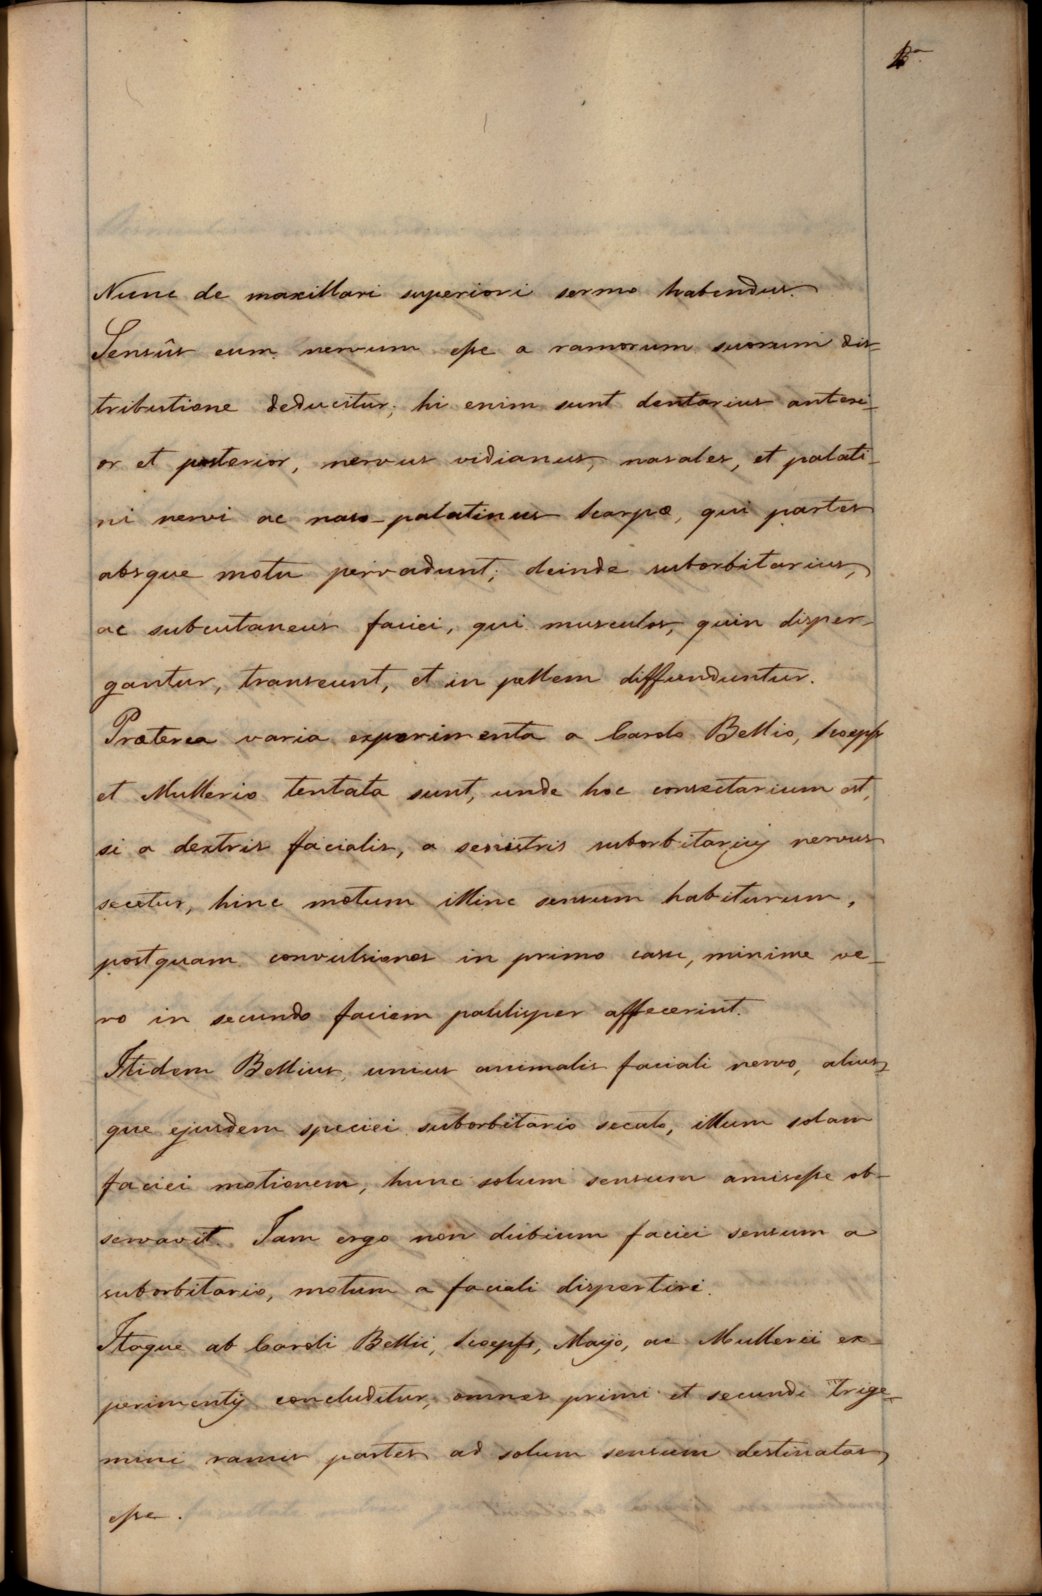 Nunc de maxillari superiori sermo habendus.
Sensûs eum nervum esse a ramorum suorum dis-
tributione deducitur; hi enim sunt dentarius anteri-
or et posterior, nervus vidianus, nasales, et palati-
ni nervi ac naso-palatinus Scarpæ, qui partes
absque motu pervadunt; deinde suborbitarius,
ac subcutaneus faciei, qui musculos, quin disper-
gantur, transeunt, et in pellem diffunduntur.
Præterea varia experimenta a Carolo Bellio, Scoepf
et Mullerio tentata sunt, unde hoc consectarium est,
si a dextris facialis, a senistris suborbitarius nervus
secetur, hinc motum illinc sensum habiturum,
postquam convulsiones in primo casu, minime ve-
ro in secundo faciem paulisper affecerint.
Itidem Bellius, unius animalis faciali nervo, alius-
que ejusdem speciei suborbitario secato, illum solam
faciei motionem, hunc solum sensum amisisse ob-
servavit. Iam ergo non dubium faciei sensum a
suborbitario, motum a faciali dispertiri.
Itaque ab Caroli Bellii, Scoepfs, Mayo, ac Mullerii ex-
perimentis concluditur, omnes primi et secundi trige-
mini ramis partes ad solum sensum destinatas
esse.